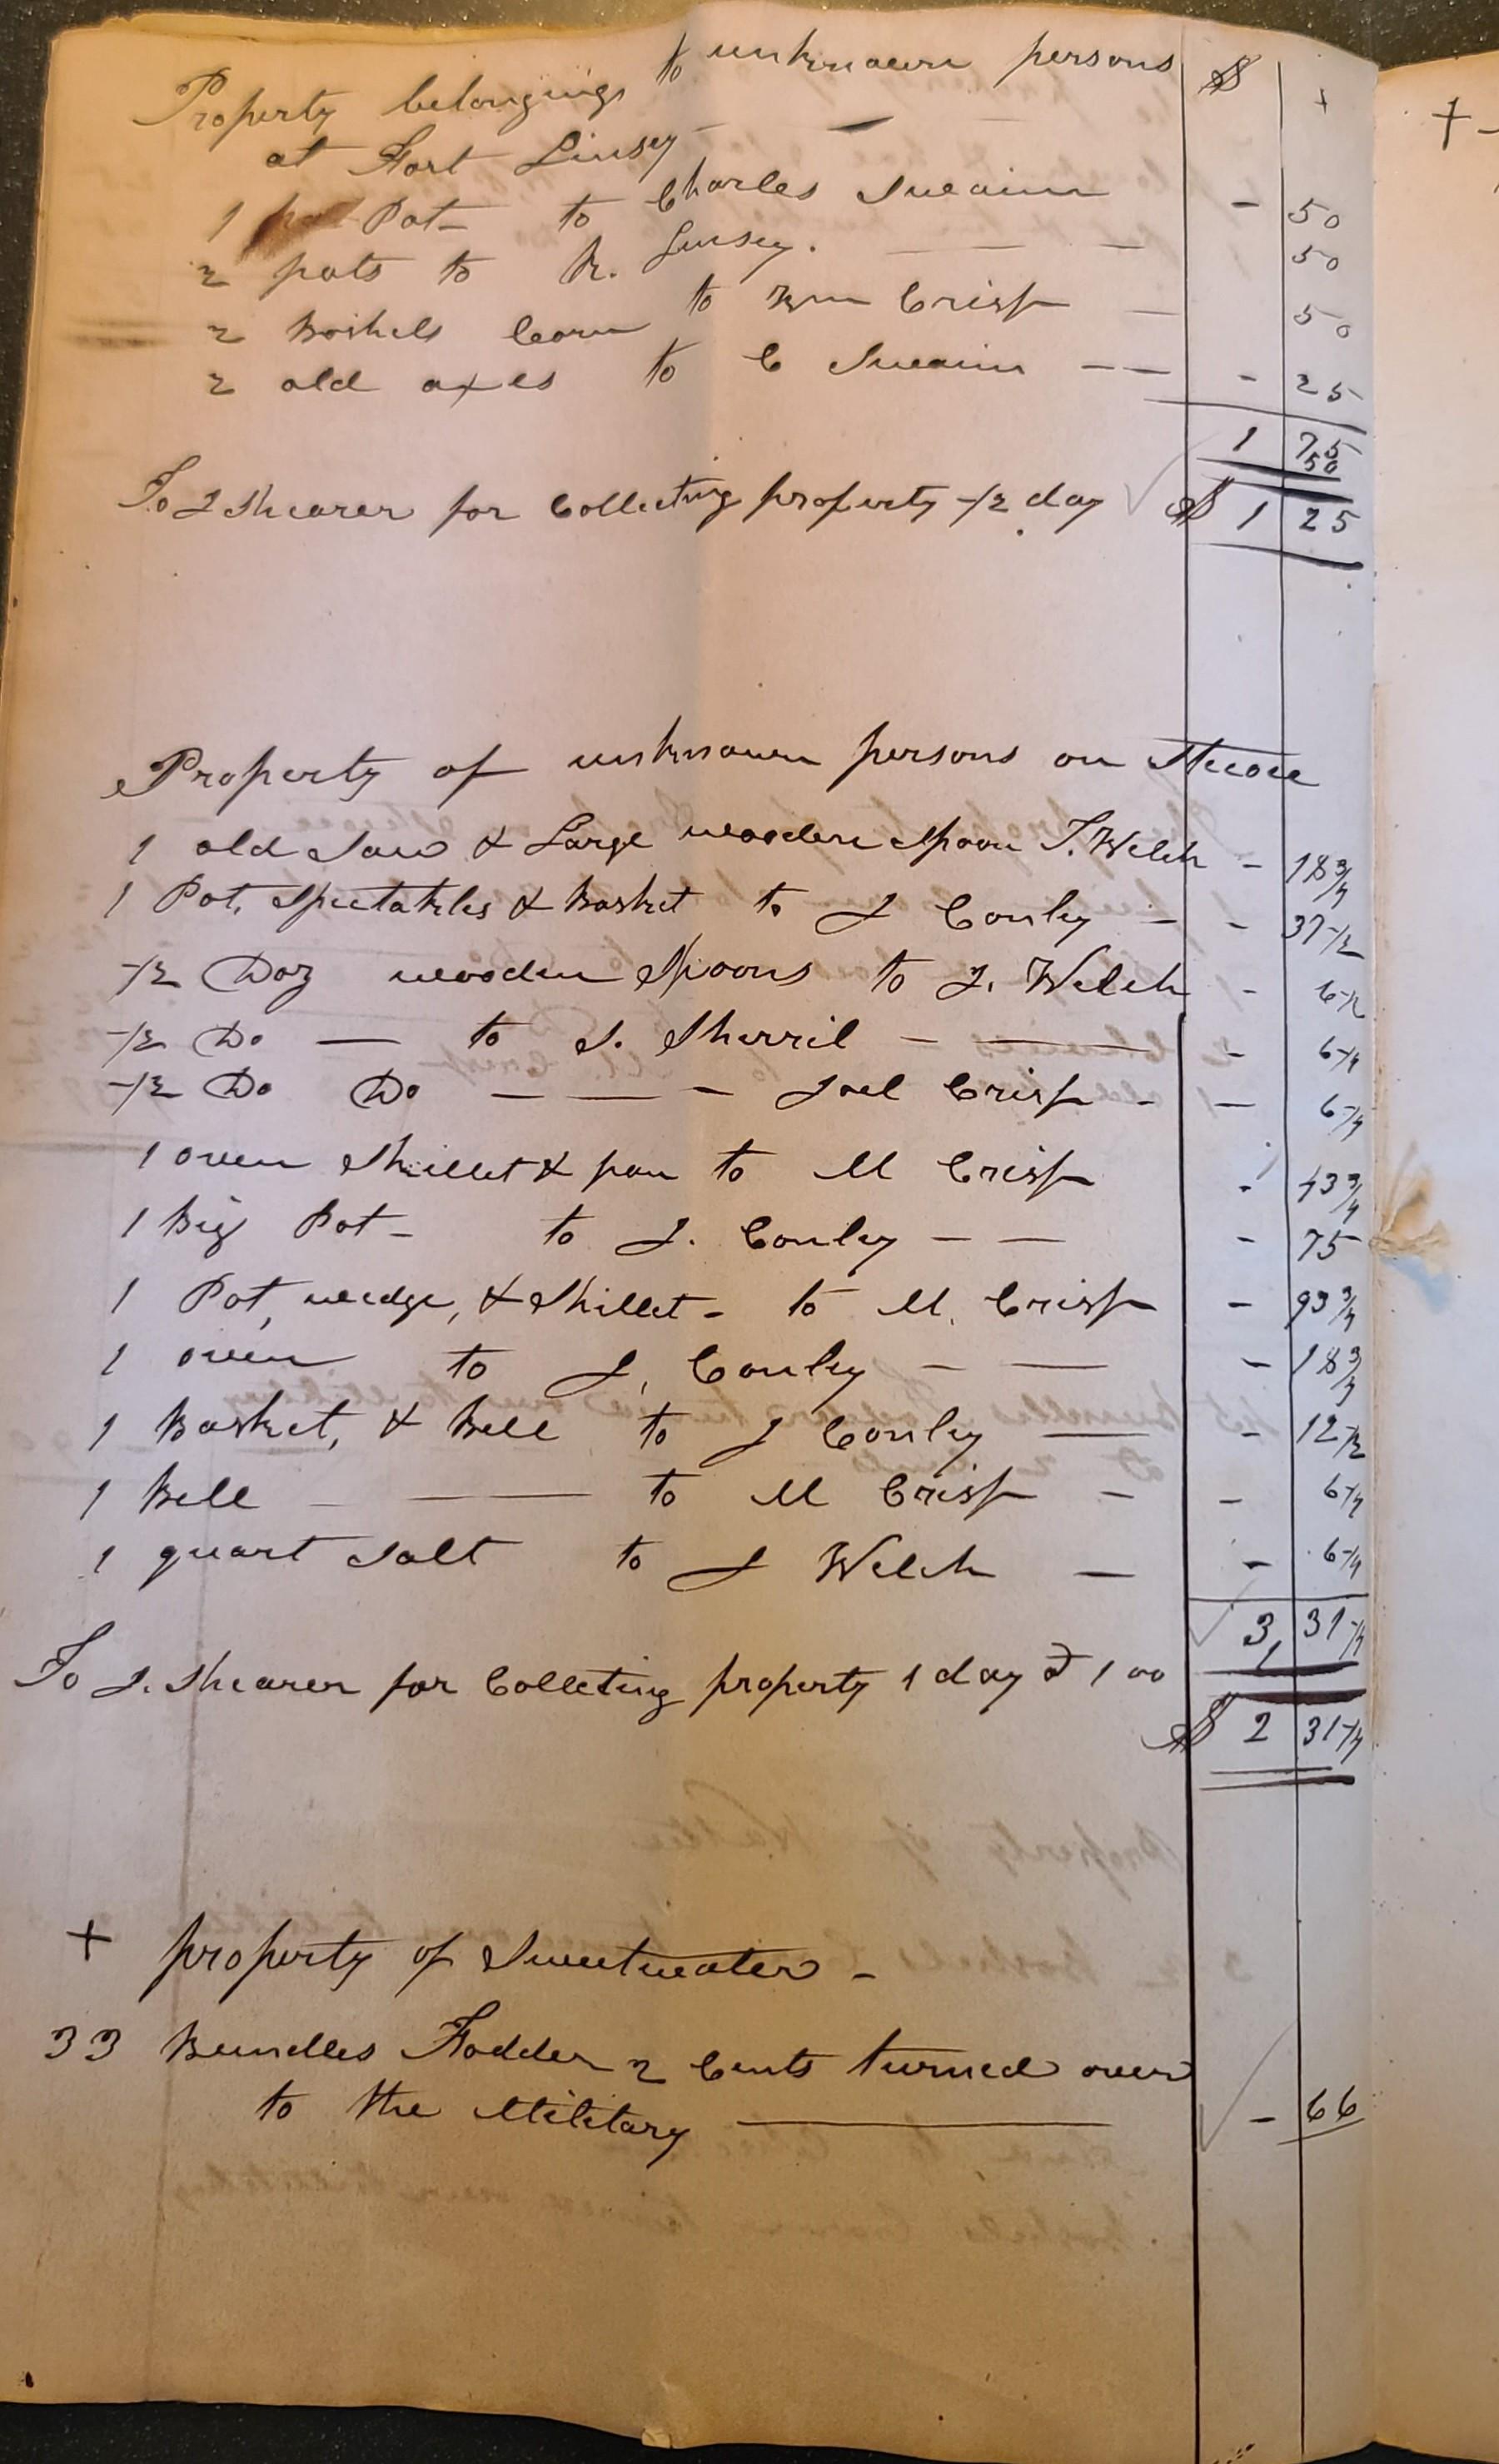 Property belonging to unknown persons $
at Fort Linsey
1 Pot to Charles Sueaim - 50
2 pots to R. Linsey. — — 50
2 Boshels Corn to Wm Crisp — 50
2 old axes to C Sueaim — — - 25
1 75
50
To J Shearer for Collecting property 1/2 day $ 1 25
Property of unknown persons on Stecoee
1 old Saw & Large wooden Spoon J. Welch - 18 3/4
1 Pot, Spectakles & Basket to J Conley — - 37 1/2
1/2 Doz wooden Spoons to J. Welch - 6 1/2
1/2 Do — to S. Sherril — — - 6 1/4
1/2 Do Do — — — Joel Crisp - — 6 1/4
1 oven Skillet & pan to M Crisp - 43 3/4
1 Big Pot - to J. Conley — — - 75
1 Pot, wedge, & Skillet - to M. Crisp - 93 3/4
1 oven to J, Conley — — - 18 3/4
1 Basket, & Bell to J Conley — - 12 1/2
1 Bell — — to M Crisp — - 6 1/4
1 quart Salt to J Welch — - 6 1/4
3, 31 1/4
To J. Shearer for Colleting property 1 day @ 1 00 1
$ 2 31 1/4
+ property of Sweetwater -
33 Bundles Fodder 2 Cents turned over
to the Military — - 66